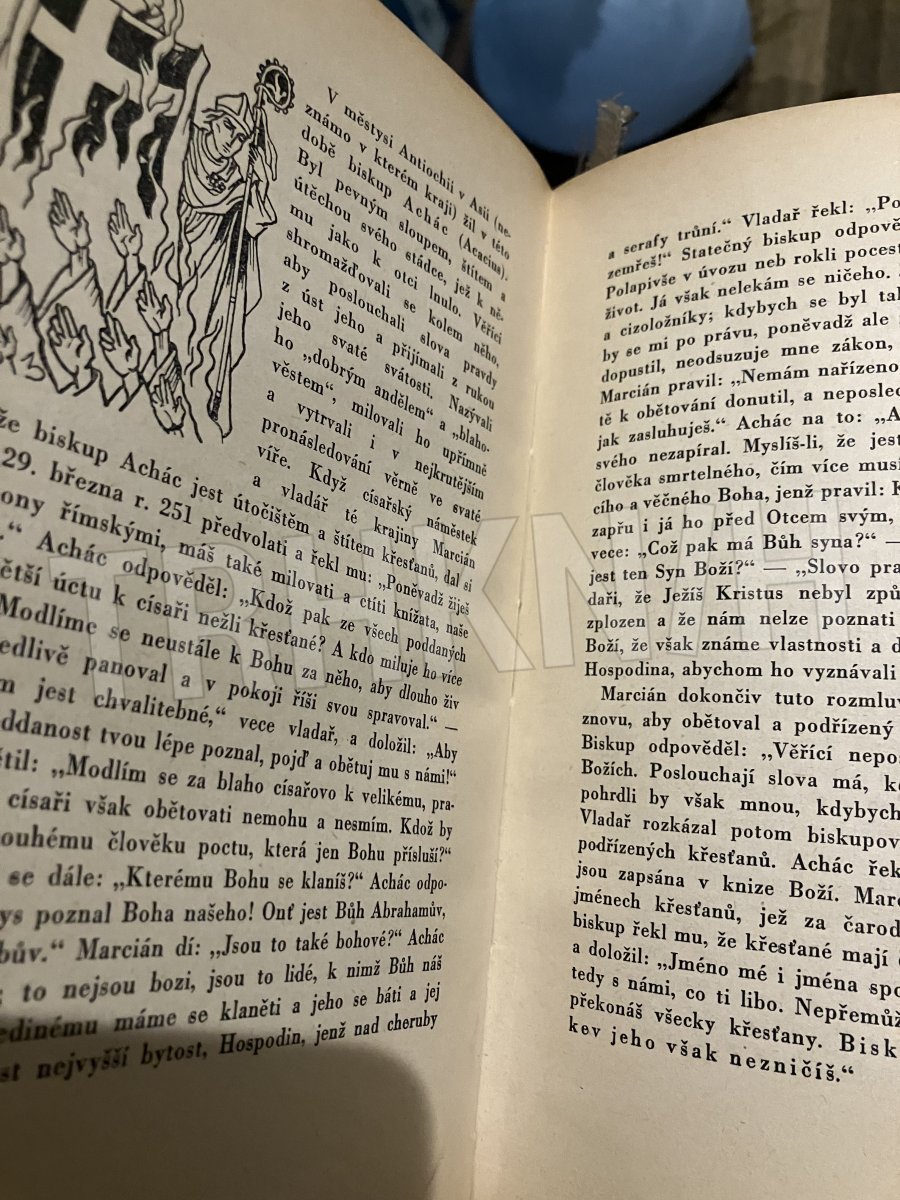 V městysi Antiochii v Asii (ne-
známo v kterém kraji) žil v této
době biskup Achác (Acacius).
Byl pevným sloupem, štítem a
útěchou svého stádce, jež k ně-
mu jako k otci lnulo. Věřící
shromažďovali se kolem něho,
aby poslouchali slova pravdy
z úst jeho a přijímali z rukou
jeho svaté svátosti. Nazývali
ho „dobrým andělem“ a „blaho-
věstem“, milovali ho upřímně
a vytrvali i v nejkrutějším
pronásledování věrně ve svaté
víře. Když císařský náměstek
a vladář té krajiny Marcián
že biskup Achác jest útočištěm a štítem křesťanů, dal si
29. března r. 251 předvolati a řekl mu: „Poněvadž žiješ
ony římskými, máš také milovati a ctíti knížata, naše
.“ Achác odpověděl: „Kdož pak ze všech poddaných
ětší úctu k císaři nežli křesťané? A kdo miluje ho více
Modlíme se neustále k Bohu za něho, aby dlouho živ
edlivě panoval a v pokoji říši svou spravoval.“ —
m jest chvalitebné,“ vece vladař, a doložil: „Aby
ddanost tvou lépe poznal, pojď a obětuj mu s námi!“
ětil: „Modlím se za blaho císařovo k velikému, pra-
císaři však obětovati nemohu a nesmím. Kdož by
louhému člověku poctu, která jen Bohu přísluší?“
se dále: „Kterému Bohu se klaníš?“ Achác odpo-
ys poznal Boha našeho! Onť jest Bůh Abrahamův,
bův.“ Marcián dí: „Jsou to také bohové?“ Achác
; to nejsou bozi, jsou to lidé, k nimž Bůh náš
edinému máme se klaněti a jeho se báti a jej
st nejvyšší bytost, Hospodin, jenž nad cheruby
a serafy trůní.“ Vladař řekl: „Po
zemřeš!“ Statečný biskup odpově
Polapivše v úvozu neb rokli pocest
život. Já však nelekám se ničeho.
a cizoložníky; kdybych se byl tak
by se mi po právu, poněvadž ale
dopustil, neodsuzuje mne zákon,
Marcián pravil: „Nemám nařízeno
tě k obětování donutil, a neposlec
jak zasluhuješ.“ Achác na to: „A
svého nezapíral. Myslíš-li, že jest
člověka smrtelného, čím více musí
cího a věčného Boha, jenž pravil: K
zapřu i já ho před Otcem svým,
vece: „Což pak má Bůh syna?“ —
jest ten Syn Boží?“ — „Slovo pra
daři, že Ježíš Kristus nebyl způ
zplozen a že nám nelze poznati
Boží, že však známe vlastnosti a d
Hospodina, abychom ho vyznávali
Marcián dokončiv tuto rozmluv
znovu, aby obětoval a podřízený
Biskup odpověděl: „Věřící nepos
Božích. Poslouchají slova má, k
pohrdli by však mnou, kdybych
Vladař rozkázal potom biskupov
podřízených křesťanů. Achác řek
jsou zapsána v knize Boží. Marc
jménech křesťanů, jež za čarod
biskup řekl mu, že křesťané mají
a doložil: „Jméno mé i jména spo
tedy s námi, co ti libo. Nepřemůž
překonáš všecky křesťany. Bisk
kev jeho však nezničíš.“